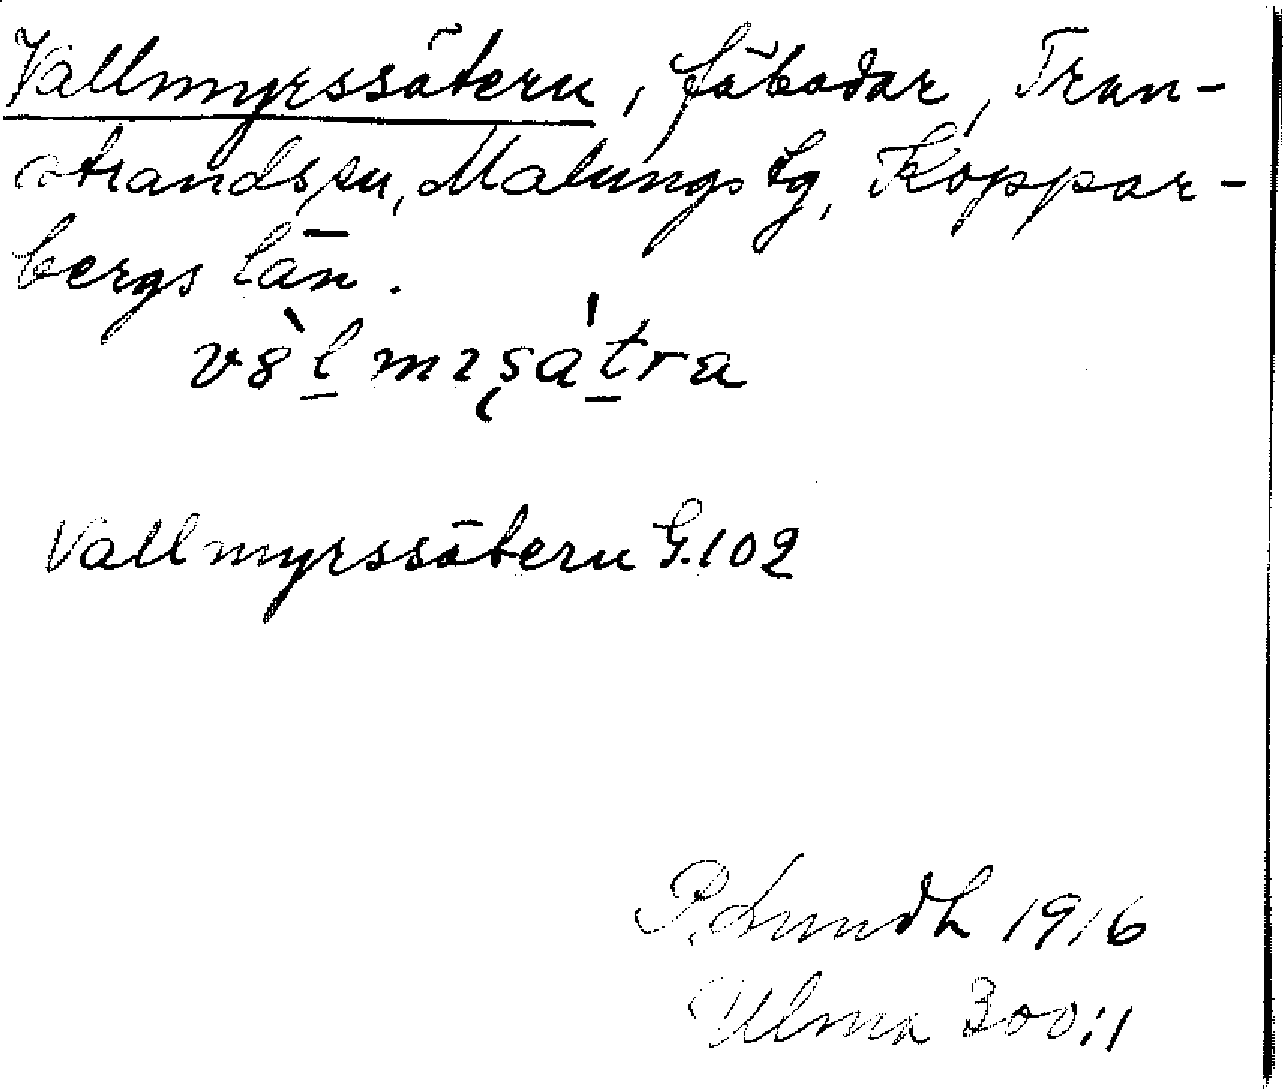 Vallmyrssätern, fäbodar, Tran-
strands sn, Malungs tg, Koppar-
bergs län.
v8̀l̲ mɿʂát̲ra
Vallmyrssätern G.102
P. Lundh 1916
Ulma 300:1